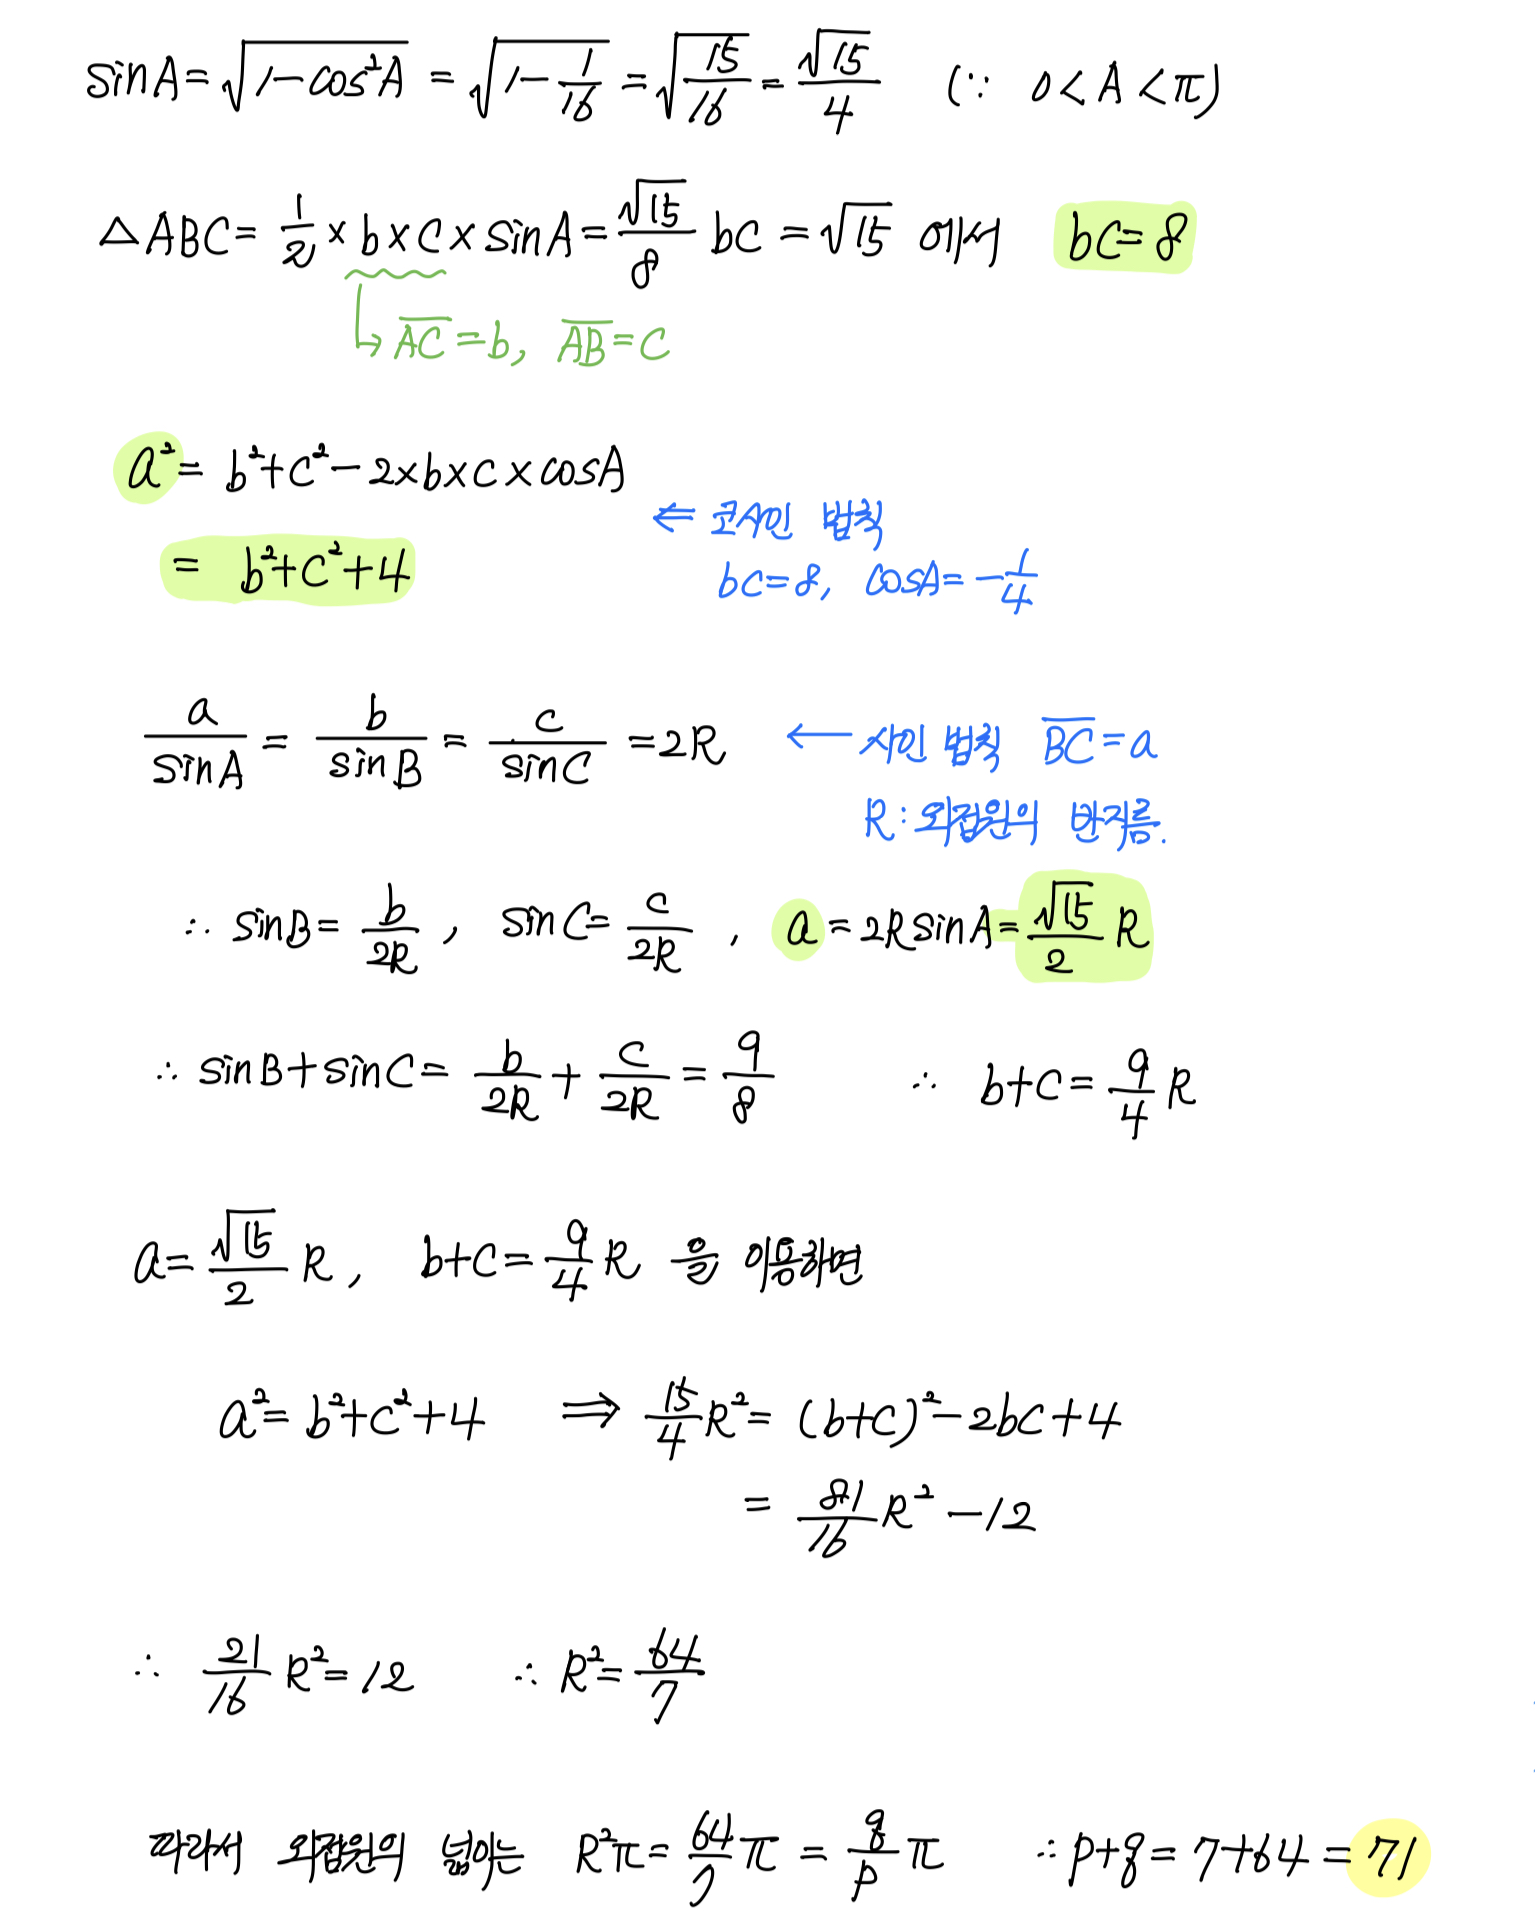 sinA = √(1-cos²A) = √(1-1/16) = √(15/16) = √15/4 (∵ 0<A<π)
△ABC = 1/2 × b × c × sinA = √15/8 bc = √15 에서 bc=8
↳ AC̅ = b, AB̅ = c
a² = b²+c²-2×b×c×cosA
⇐ 코사인 법칙
= b²+c²+4
bc=8, cosA=-1/4
a/sinA = b/sinB = c/sinC = 2R ← 사인 법칙 BC̅ = a
R : 외접원의 반지름.
∴ sinB = b/2R , sinC = c/2R , a = 2RsinA = √15/2 R
∴ sinB+sinC = b/2R + c/2R = 9/8 ∴ b+c = 9/4 R
a = √15/2 R, b+c = 9/4 R 을 이용하면
a² = b²+c²+4 ⇒ 15/4 R² = (b+c)²-2bc+4
= 81/16 R² - 12
∴ 21/16 R² = 12 ∴ R² = 64/7
따라서 외접원의 넓이는 R²π = 64/7 π = q/p π ∴ p+q = 7+64 = 71